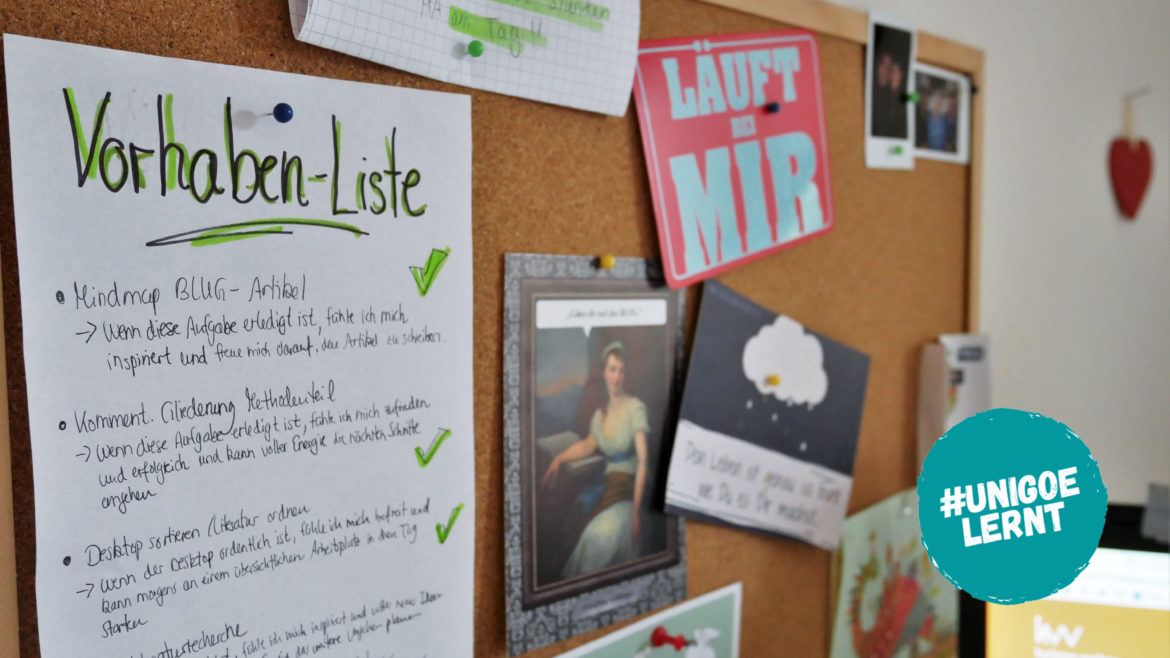 am Tag!!
Vorhaben-Liste
• Mindmap BLUG-Artikel
→ Wenn diese Aufgabe erledigt ist, fühle ich mich
inspiriert und freue mich darauf, den Artikel zu schreiben.
• Komment. Gliederung Methodenteil
→ Wenn diese Aufgabe erledigt ist, fühle ich mich zufrieden
und erfolgreich und kann voller Energie die nächsten Schritte
angehen
• Desktop sortieren/Literatur ordnen
→ Wenn der Desktop ordentlich ist, fühle ich mich befreit und
kann morgens an einem übersichtlichen Arbeitsplatz in den Tag
starten
fühle ich mich inspiriert und voller neuer Ideen
LÄUFT
BEI
MIR
Dein Leben ist genau so bunt
wie Du es Dir machst.
#UNIGOE
LERNT